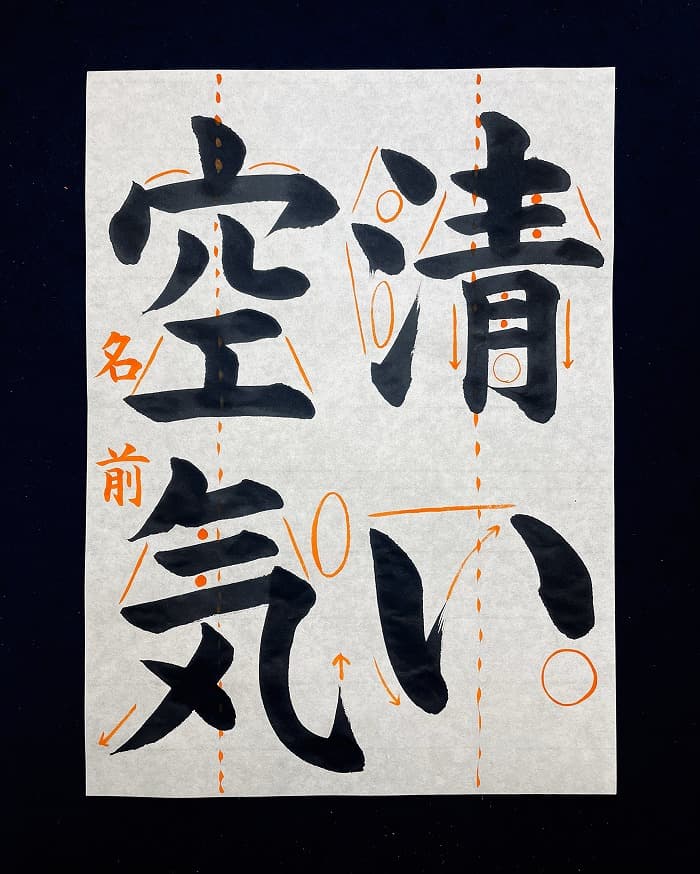 清い
空気
名前